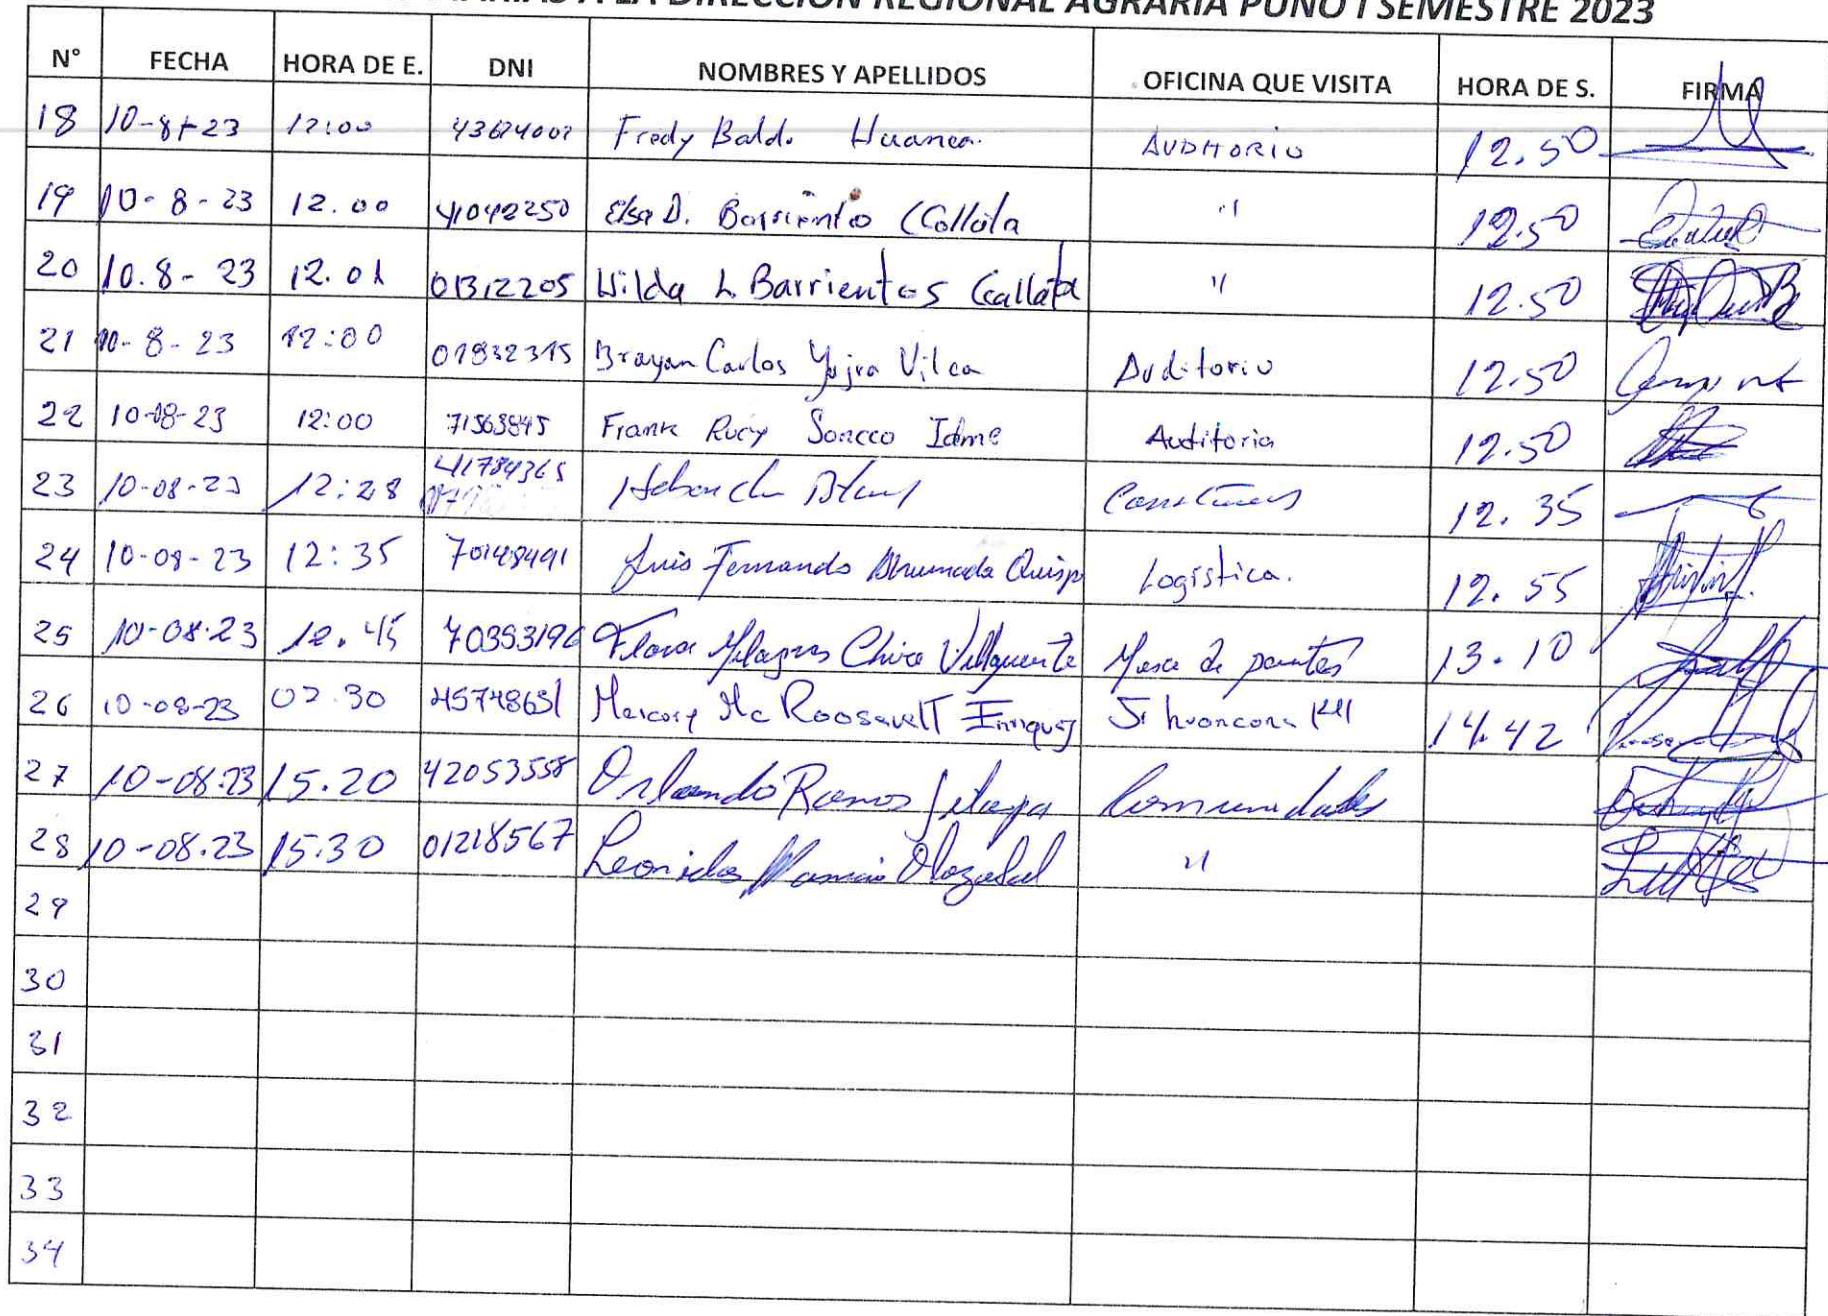 A LA DIRECCION REGIONAL AGRARIA PUNO I SEMESTRE 2023
N° FECHA HORA DE E. DNI NOMBRES Y APELLIDOS OFICINA QUE VISITA HORA DE S. FIRMA
18 10-8-23 12:00 Fredy Huanca. AUDITORIO 12.50
19 10-8-23 12.00 41042250 Elsa D. Barriento Ccallata " 12.50
20 10.8-23 12.01 01312205 Wilda L Barrientos Ccallata " 12.50
21 10-8-23 12:00 01832315 Brayan Carlos Yujra Vilca Auditorio 12.50
22 10-08-23 12:00 71563845 Frank Rucy Soncco Idme Auditorio 12.50
23 10-08-23 12:28 41784365 12.35
24 10-08-23 12:35 70148491 Luis Fernando Quisp Logistica. 12.55
25 10-08-23 12.45 70353196 Milagros Mesa de partes 13.10
26 10-08-23 02.30 45748631 Roosevelt Enriquez 14.42
27 10-08.23 15.20 42053558 Orlando Ramos Comunidades
28 10-08.23 15:30 01218567 Leonidas Olazabal "
29
30
31
32
33
34